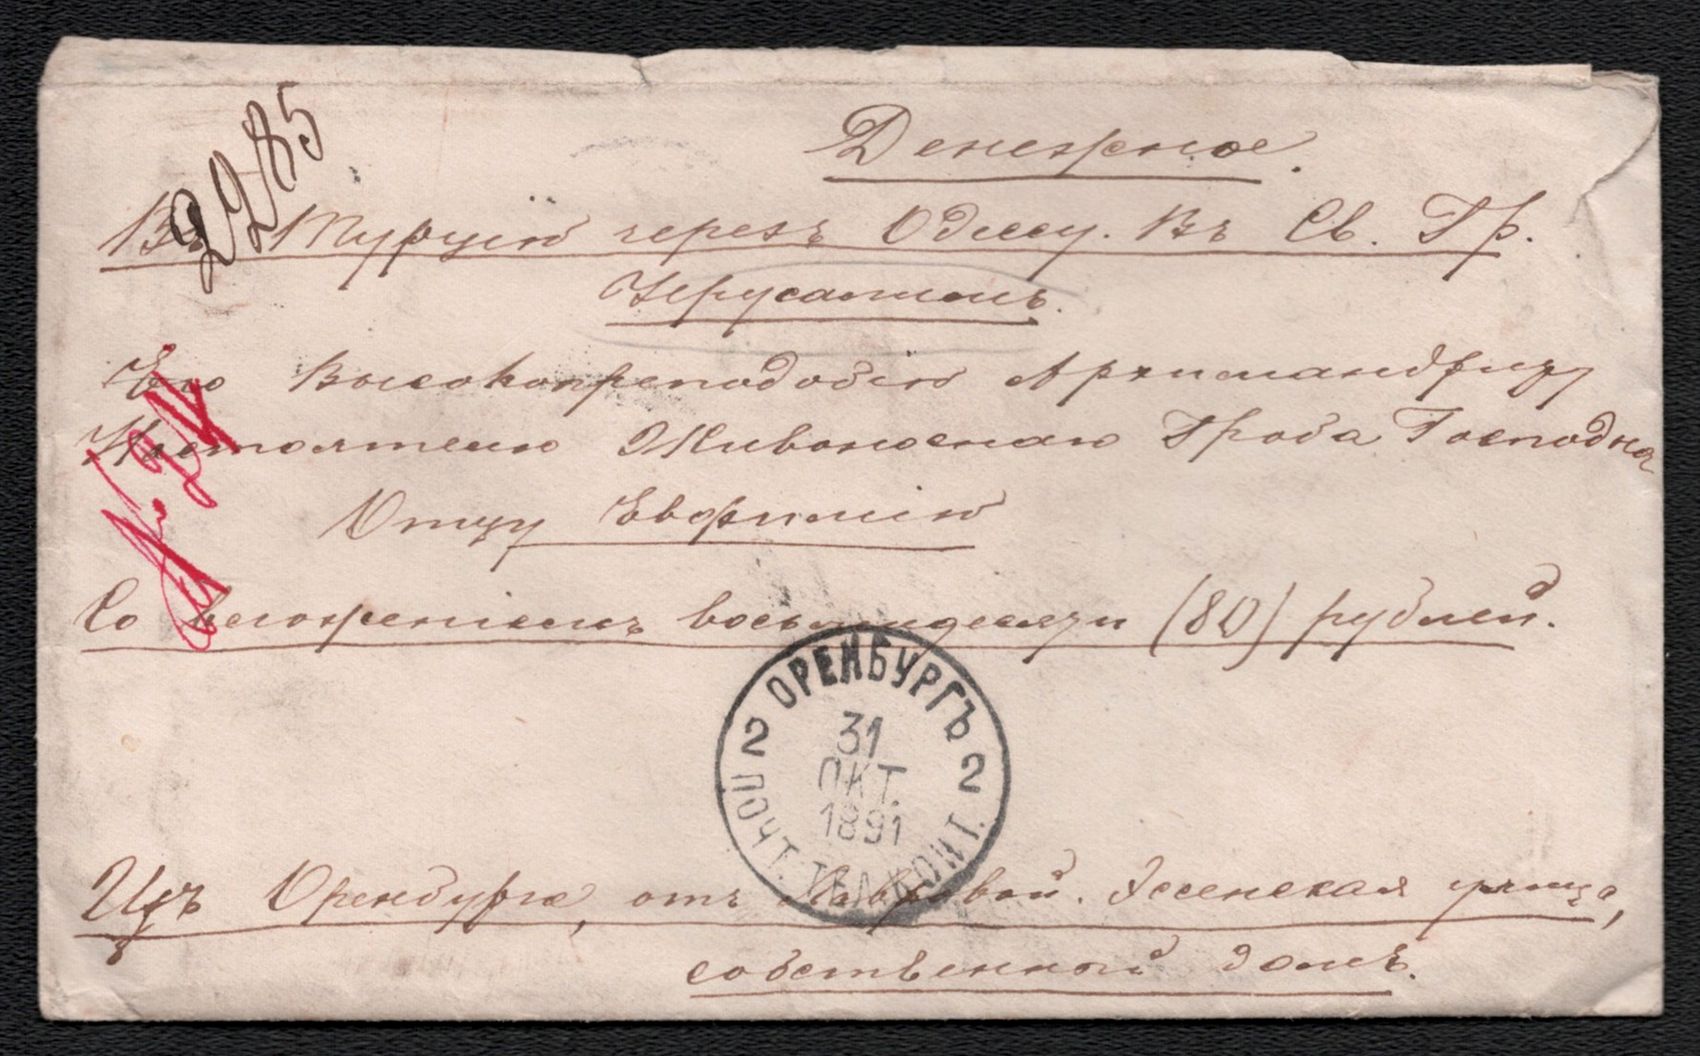 Денежное.
22185
Въ Турцію черезъ Одессу. Въ Св. Гр.
Іерусалимъ.
Его Высокопреподобію Архимандриту
Настоятелю Живоноснаго Гроба Господня
Отцу Евфимію
Со вложеніемъ восьмидесяти (80) рублей.
ОРЕНБУРГЪ
2 2
31
ОКТ.
1891
ПОЧТ. ТЕЛ. КОНТ.
Изъ Оренбурга, отъ Эссенская улица,
собственный домъ.